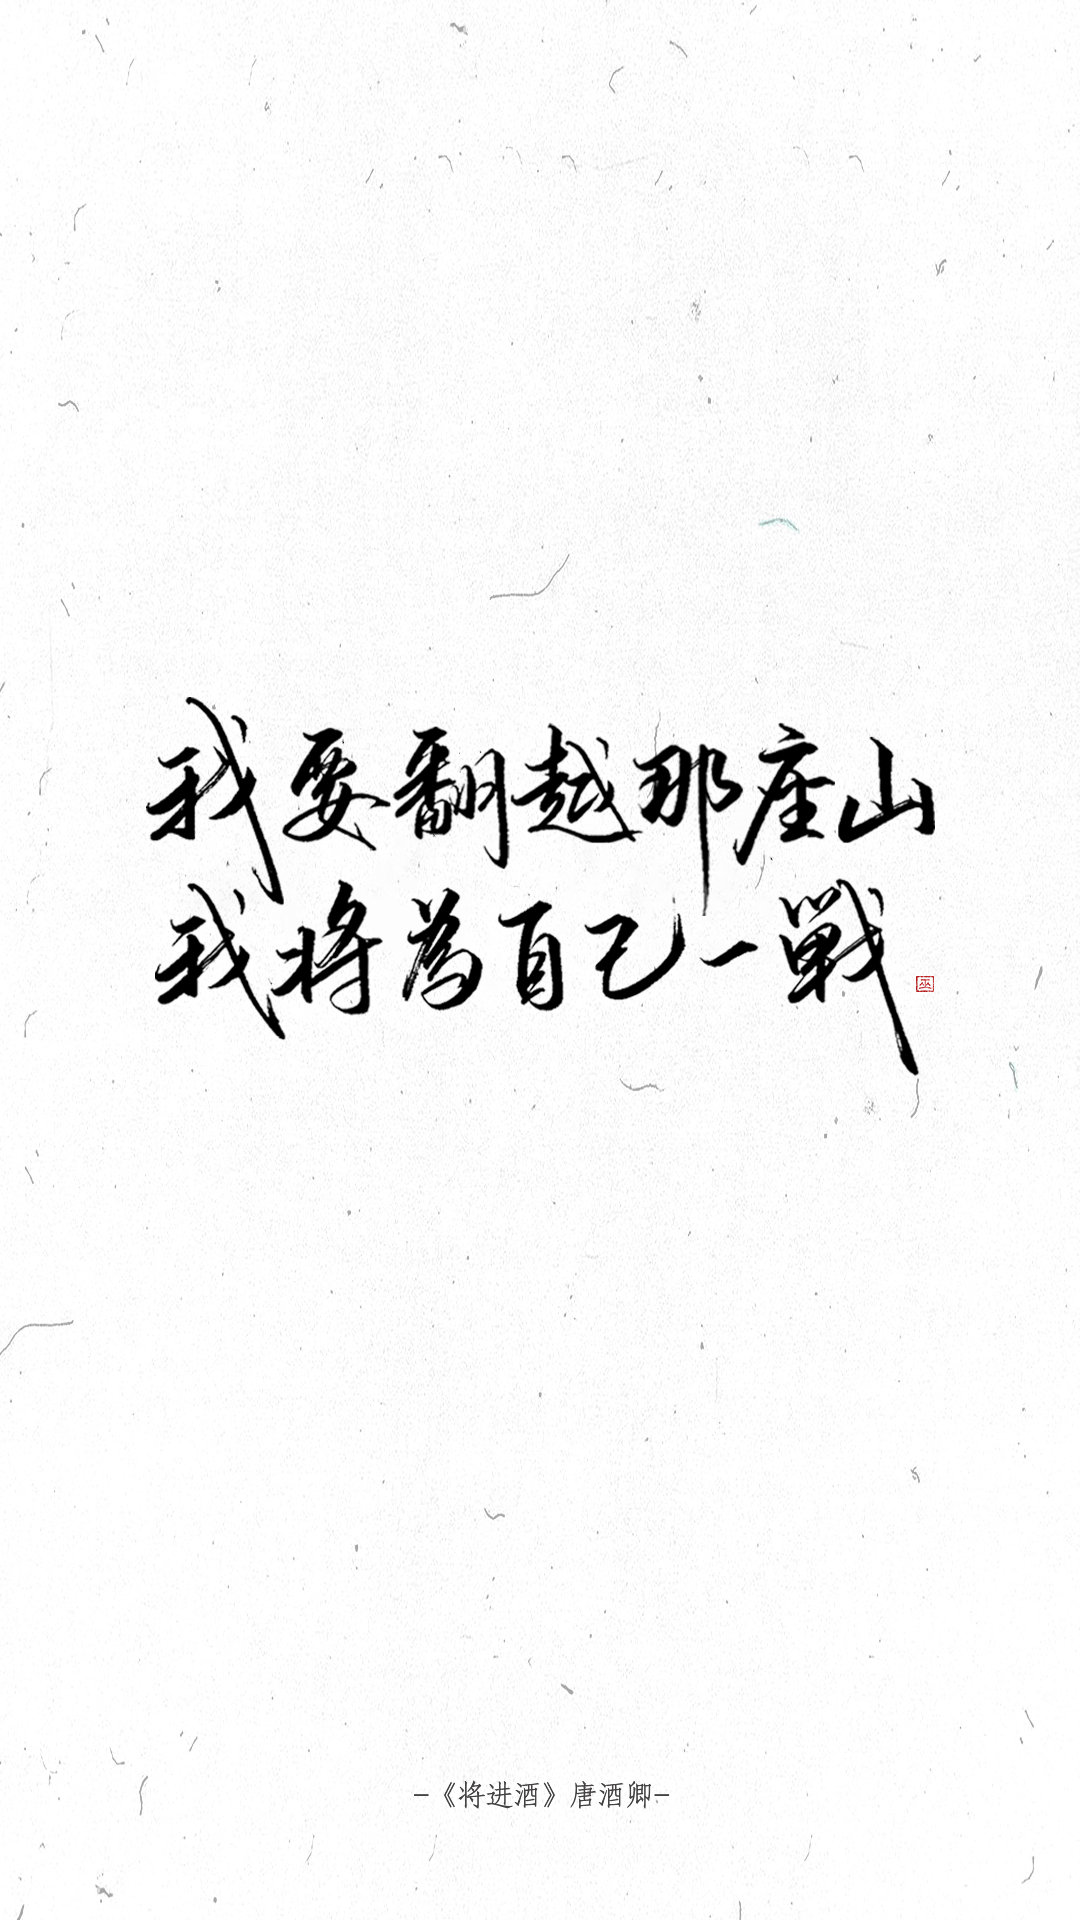 我要翻越那座山
我将為自己一戦
巫
—《将进酒》唐酒卿—